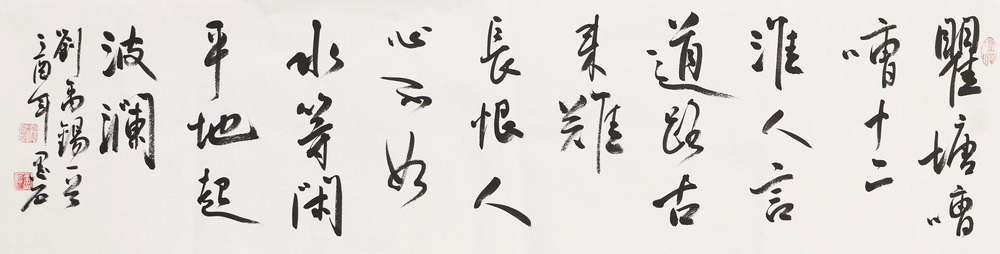 瞿塘嘈
嘈十二
滩人言
道路古
来難
長恨人
心不如
水等闲
平地起
波澜
劉禹锡一首
酉年